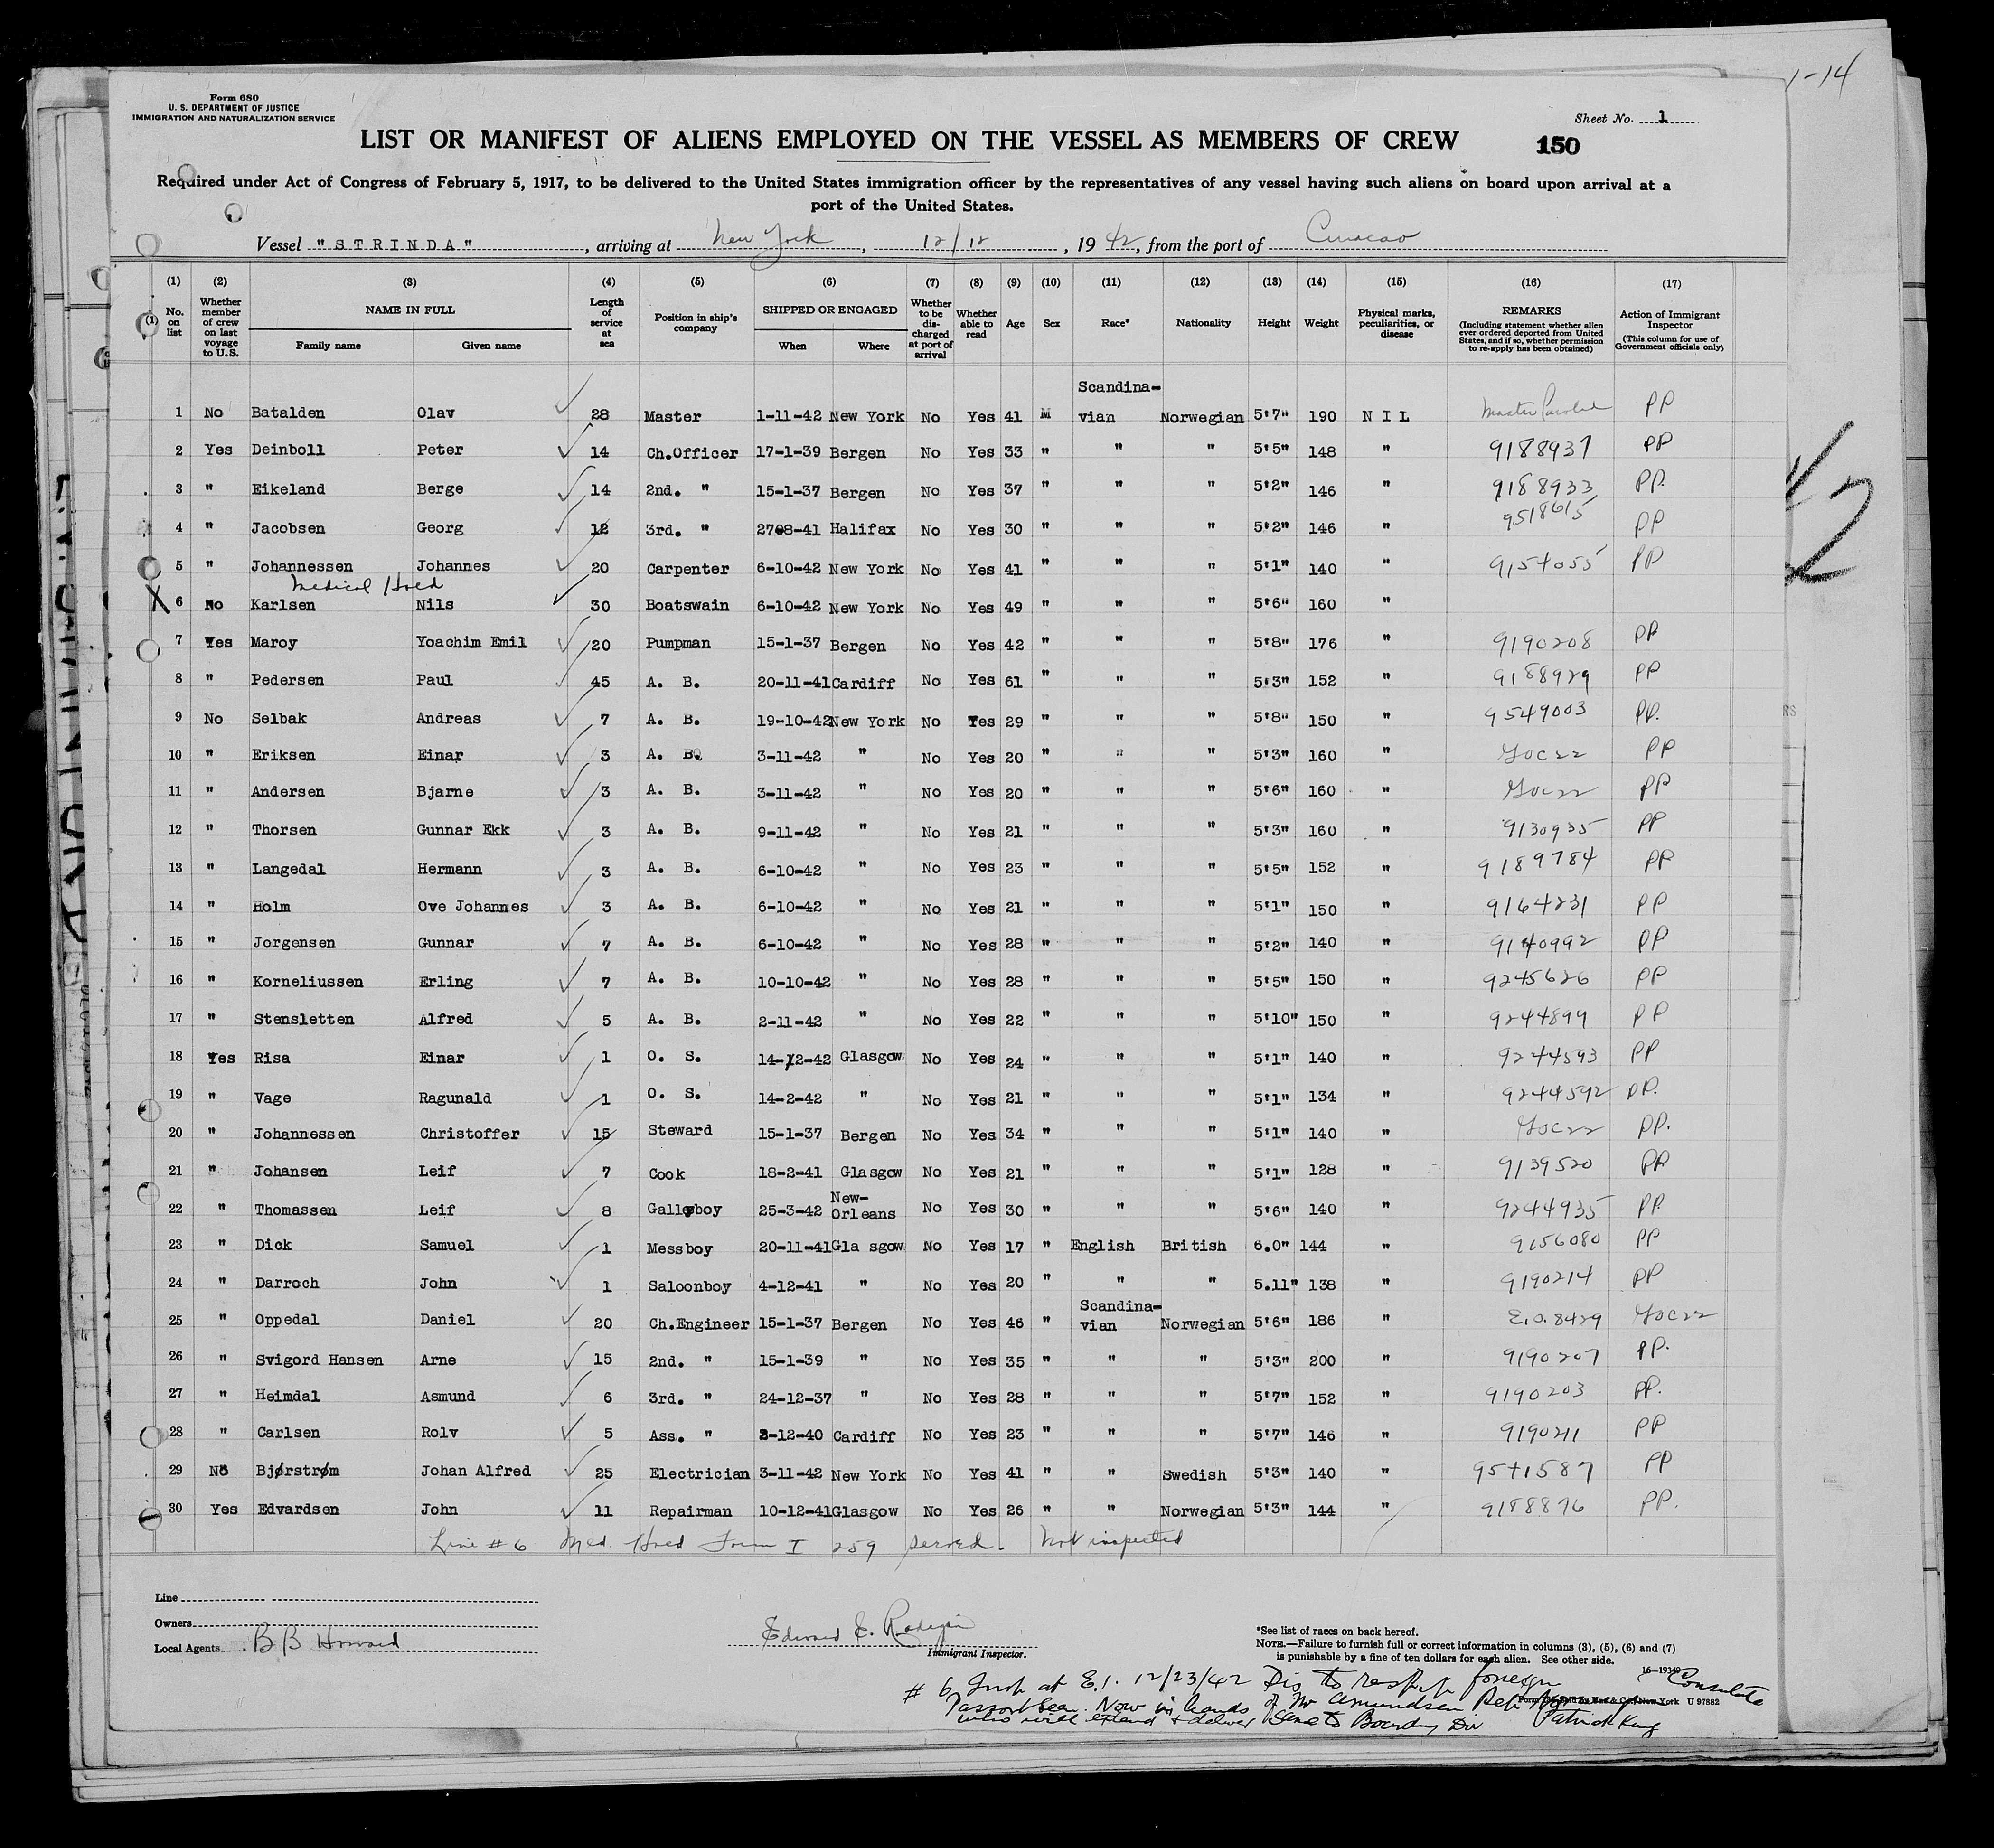 1-14
Form 680
U. S. DEPARTMENT OF JUSTICE
IMMIGRATION AND NATURALIZATION SERVICE
Sheet No. 1
LIST OR MANIFEST OF ALIENS EMPLOYED ON THE VESSEL AS MEMBERS OF CREW
150
Required under Act of Congress of February 5, 1917, to be delivered to the United States immigration officer by the representatives of any vessel having such aliens on board upon arrival at a
port of the United States.
Vessel "STRINDA", arriving at New York, 12/12, 1942, from the port of Curacao
(1) No. on list (2) Whether member of crew on last voyage to U.S. (3) NAME IN FULL Family name Given name (4) Length of service at sea (5) Position in ship's company (6) SHIPPED OR ENGAGED When Where (7) Whether to be discharged at port of arrival (8) Whether able to read (9) Age (10) Sex (11) Race* (12) Nationality (13) Height (14) Weight (15) Physical marks, peculiarities, or disease (16) REMARKS (Including statement whether alien ever ordered deported from United States, and if so, whether permission to re-apply has been obtained) (17) Action of Immigrant Inspector (This column for use of Government officials only)
1 No Batalden Olav 28 Master 1-11-42 New York No Yes 41 M Scandina-vian Norwegian 5'7" 190 NIL Master PP
2 Yes Deinboll Peter 14 Ch.Officer 17-1-39 Bergen No Yes 33 " " " 5'5" 148 " 9188937 PP
3 " Eikeland Berge 14 2nd. " 15-1-37 Bergen No Yes 37 " " " 5'2" 146 " 9188933 PP.
4 " Jacobsen Georg 12 3rd. " 27-8-41 Halifax No Yes 30 " " " 5'2" 146 " 9518615 PP
5 " Johannessen Johannes 20 Carpenter 6-10-42 New York No Yes 41 " " " 5'1" 140 " 9154055 PP
Medical Hold
X 6 No Karlsen Nils 30 Boatswain 6-10-42 New York No Yes 49 " " " 5'6" 160 "
7 Yes Maroy Yoachim Emil 20 Pumpman 15-1-37 Bergen No Yes 42 " " " 5'8" 176 " 9190208 PP
8 " Pedersen Paul 45 A. B. 20-11-41 Cardiff No Yes 61 " " " 5'3" 152 " 9188929 PP
9 No Selbak Andreas 7 A. B. 19-10-42 New York No Yes 29 " " " 5'8" 150 " 9549003 PP.
10 " Eriksen Einar 3 A. B. 3-11-42 " No Yes 20 " " " 5'3" 160 " PP
11 " Andersen Bjarne 3 A. B. 3-11-42 " No Yes 20 " " " 5'6" 160 " PP
12 " Thorsen Gunnar Ekk 3 A. B. 9-11-42 " No Yes 21 " " " 5'3" 160 " 9130935 PP
13 " Langedal Hermann 3 A. B. 6-10-42 " No Yes 23 " " " 5'5" 152 " 9189784 PP
14 " Holm Ove Johannes 3 A. B. 6-10-42 " No Yes 21 " " " 5'1" 150 " 9164231 PP
15 " Jorgensen Gunnar 7 A. B. 6-10-42 " No Yes 28 " " " 5'2" 140 " 9140992 PP
16 " Korneliussen Erling 7 A. B. 10-10-42 " No Yes 28 " " " 5'5" 150 " 9245626 PP
17 " Stensletten Alfred 5 A. B. 2-11-42 " No Yes 22 " " " 5'10" 150 " 9244899 PP
18 Yes Risa Einar 1 O. S. 14-12-42 Glasgow No Yes 24 " " " 5'1" 140 " 9244593 PP
19 " Vage Ragunald 1 O. S. 14-2-42 " No Yes 21 " " " 5'1" 134 " 9244592 PP.
20 " Johannessen Christoffer 15 Steward 15-1-37 Bergen No Yes 34 " " " 5'1" 140 " PP.
21 " Johansen Leif 7 Cook 18-2-41 Glasgow No Yes 21 " " " 5'1" 128 " 9139520 PP
22 " Thomassen Leif 8 Galleyboy 25-3-42 New-Orleans No Yes 30 " " " 5'6" 140 " 9244935 PP.
23 " Dick Samuel 1 Messboy 20-11-41 Gla sgow No Yes 17 " English British 6.0" 144 " 9156080 PP
24 " Darroch John 1 Saloonboy 4-12-41 " No Yes 20 " " " 5.11" 138 " 9190214 PP
25 " Oppedal Daniel 20 Ch.Engineer 15-1-37 Bergen No Yes 46 " Scandina-vian Norwegian 5'6" 186 " E.O. 8429
26 " Svigord Hansen Arne 15 2nd. " 15-1-39 " No Yes 35 " " " 5'3" 200 " 9190207 PP.
27 " Heimdal Asmund 6 3rd. " 24-12-37 " No Yes 28 " " " 5'7" 152 " 9190203 PP.
28 " Carlsen Rolv 5 Ass. " 2-12-40 Cardiff No Yes 23 " " " 5'7" 146 " 9190211 PP
29 No Bjørstrøm Johan Alfred 25 Electrician 3-11-42 New York No Yes 41 " " Swedish 5'3" 140 " 9541587 PP
30 Yes Edvardsen John 11 Repairman 10-12-41 Glasgow No Yes 26 " " Norwegian 5'3" 144 " 9188876 PP.
Line #6 Med. Hold Form I 259 served. Not inspected
Line
Owners
Local Agents B B Howard
Edward E.
Immigrant Inspector.
*See list of races on back hereof.
NOTE.—Failure to furnish full or correct information in columns (3), (5), (6) and (7)
is punishable by a fine of ten dollars for each alien. See other side.
16-1934
U 97882
#6 Insp at E.I. 12/23/42 Dis to reship foreign Consulate
Passport seen. Now in hands of Mr Amundsen Rep
who will extend + deliver same to Boarding Div Patrick King